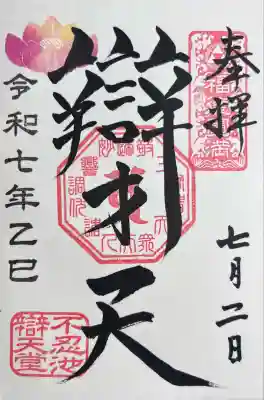 奉拝
七月二日
辯才天
令和七年乙巳
不忍池
辯天堂